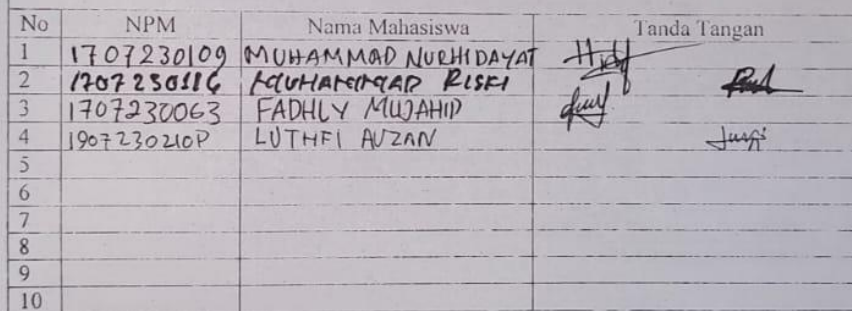 No NPM Nama Mahasiswa Tanda Tangan
1 1707230109 MUHAMMAD NURHIDAYAT
2 1707230116 MUHAMMAD RISKI
3 1707230063 FADHLY MUJAHID
4 1907230210P LUTHFI AUZAN
5
6
7
8
9
10